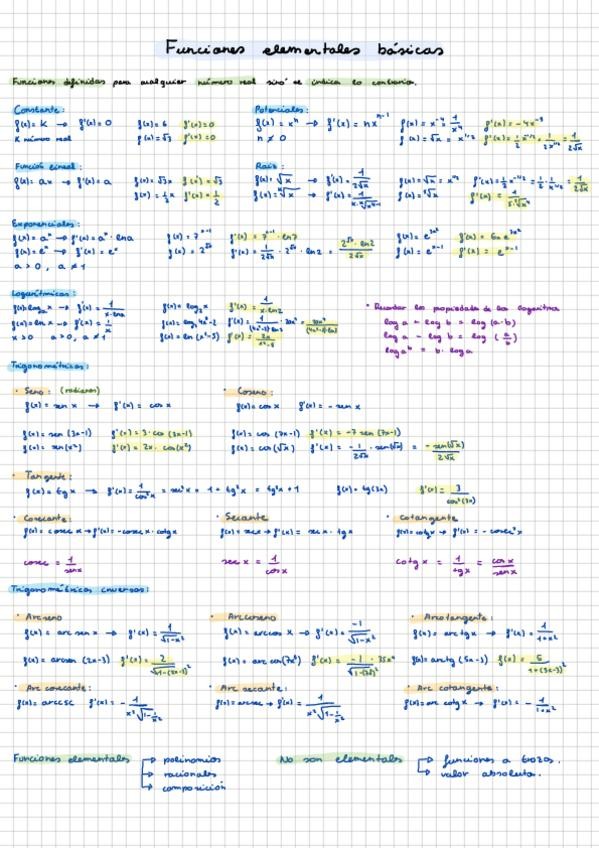 Funciones elementales básicas
Funciones definidas para cualquier número real sino se indica lo contrario.
Constante:
f(x) = K → f'(x) = 0 f(x) = 6 f'(x) = 0
K número real f(x) = √3 f'(x) = 0
Potenciales:
f(x) = xⁿ → f'(x) = nxⁿ⁻¹ f(x) = x⁻⁴ = 1/x⁴ f'(x) = -4x⁻⁵
n ≠ 0 f(x) = √x = x^(1/2) f'(x) = 1/2 x^(-1/2) = 1/2 · 1/x^(1/2) = 1/(2√x)
Función lineal:
f(x) = ax → f'(x) = a f(x) = √3x f'(x) = √3
f(x) = 1/2 x f'(x) = 1/2
Raíz:
f(x) = √x → f'(x) = 1/(2√x) f(x) = √x = x^(1/2)
Exponenciales:
f(x) = aˣ → f'(x) = aˣ · lna f(x) = 7^(x-1) f'(x) = 7^(x-1) · ln7
f(x) = eˣ → f'(x) = eˣ f(x) = 2^(√x) f'(x) = 1/(2√x) · 2^(√x) · ln2 = (2^(√x) · ln2)/(2√x)
f(x) = e^(x-1) f'(x) = e^(x-1)
a > 0, a ≠ 1
Logarítmicas:
f(x) = logₐx → f'(x) = 1/(x·lna) f(x) = log₂x f'(x) = 1/(x·ln2)
f(x) = ln x → f'(x) = 1/x
x > 0 a > 0, a ≠ 1
* Recordar las propiedades de los logaritmos
log a + log b = log (a·b)
log a - log b = log (a/b)
log aᵇ = b · log a
Trigonométricas:
· Seno: (radianes)
f(x) = sen x → f'(x) = cos x
f(x) = sen (3x-1) f'(x) = 3 · cos (3x-1)
f(x) = sen(x²) f'(x) = 2x · cos(x²)
· Coseno:
f(x) = cos x f'(x) = - sen x
f(x) = cos (7x-1) f'(x) = -7 sen (7x-1)
f(x) = cos (√x) f'(x) = -1/(2√x) · sen(√x) = - sen(√x)/(2√x)
· Tangente:
f(x) = tg x → f'(x) = 1/cos²x = sec²x = 1 + tg²x = tg²x + 1 f(x) = tg(3x) f'(x) = 3/cos²(3x)
· Cosecante
f(x) = cosec x → f'(x) = -cosec x · cotg x
cosec = 1/senx
· Secante
f(x) = sec x → f'(x) = sec x · tg x
sec x = 1/cosx
· cotangente
f(x) = cotg x → f'(x) = - cosec²x
cotg x = 1/tgx = cosx/senx
Trigonométricas inversas:
· Arcseno
f(x) = arc sen x → f'(x) = 1/√(1-x²)
· Arccoseno
f(x) = arccos x → f'(x) = -1/√(1-x²)
· Arcotangente:
f(x) = arc tg x → f'(x) = 1/(1+x²)
· Arc cosecante:
f(x) = arccsc f'(x) = - 1/(x²√(1-1/x²))
· Arc secante:
f(x) = arcsec → f'(x) = 1/(x²√(1-1/x²))
· Arc cotangente:
f(x) = arc cotg x → f'(x) = - 1/(1+x²)
Funciones elementales → polinomios
→ racionales
→ composición
No son elementales → funciones a trozos.
→ valor absoluto.